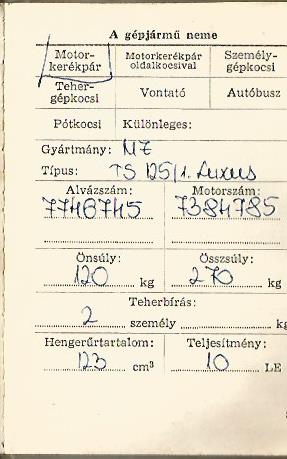 A gépjármű neme
Motor- Motorkerékpár Személy-
kerékpár oldalkocsival gépkocsi
Teher- Vontató Autóbusz
gépkocsi
Pótkocsi Különleges:
Gyártmány: MZ
Típus: TS 125/1. Luxus
Alvázszám: Motorszám:
7746745 7384785
Önsúly: Összsúly:
120 kg 270 kg
Teherbírás:
2 személy kg
Hengerűrtartalom: Teljesítmény:
123 cm³ 10 LE